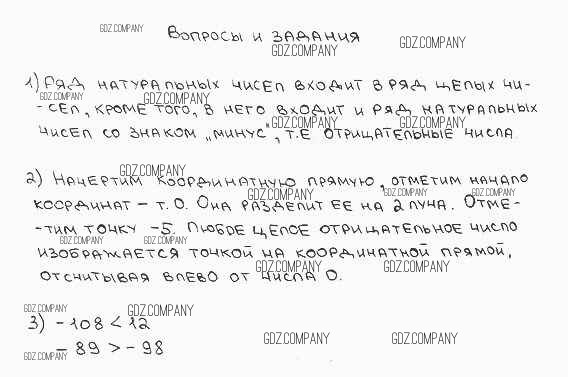 GDZ.COMPANY
Вопросы и задания
GDZ.COMPANY GDZ.COMPANY
1) Ряд натуральных чисел входит в ряд целых чи-
GDZ.COMPANY GDZ.COMPANY
-сел, кроме того, в него входит и ряд натуральных
GDZ.COMPANY GDZ.COMPANY
чисел со знаком „минус", т.е отрицательные числа
GDZ.COMPANY
2) Начертим координатную прямую, отметим начало
GDZ.COMPANY GDZ.COMPANY GDZ.COMPANY
координат – т. О. Она разделит ее на 2 луча. Отме-
-тим точку -5. Любое целое отрицательное число
GDZ.COMPANY GDZ.COMPANY
изображается точкой на координатной прямой,
GDZ.COMPANY GDZ.COMPANY
отсчитывая влево от числа 0.
GDZ.COMPANY GDZ.COMPANY
3) -108 < 12
GDZ.COMPANY GDZ.COMPANY
-89 > -98
GDZ.COMPANY